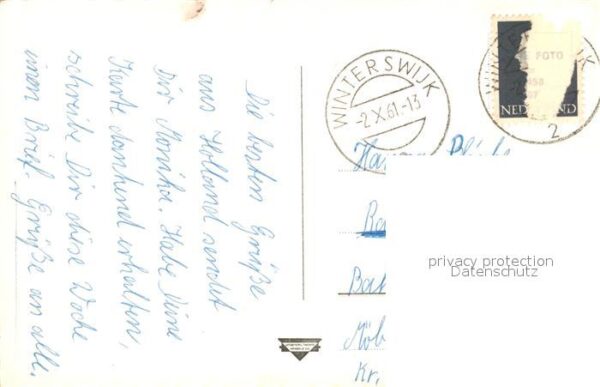 Die besten Grüße
aus Holland sendet
Dir Monika. Habe Deine
Karte dankend erhalten,
schreibe Dir diese Woche
einen Brief. Grüße an alle.
WINTERSWIJK
-2.X.61.-13
FOTO
NEDERLAND
2
privacy protection
Datenschutz
Kr.